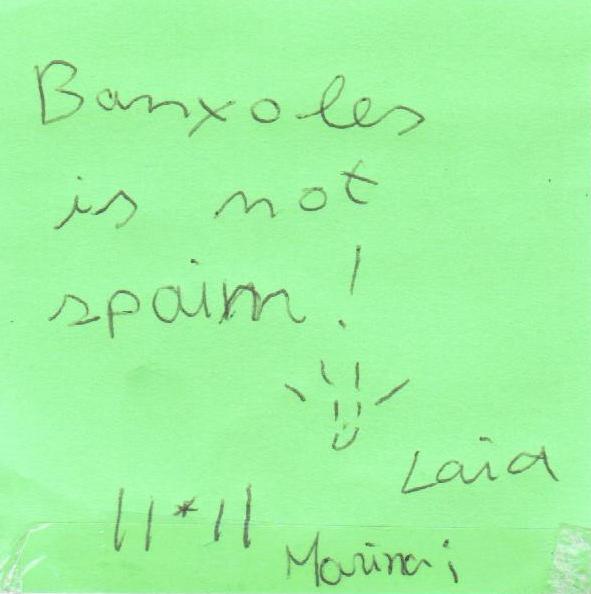 Banxoles
is not
spaim!
Laia
||*||
Marina;